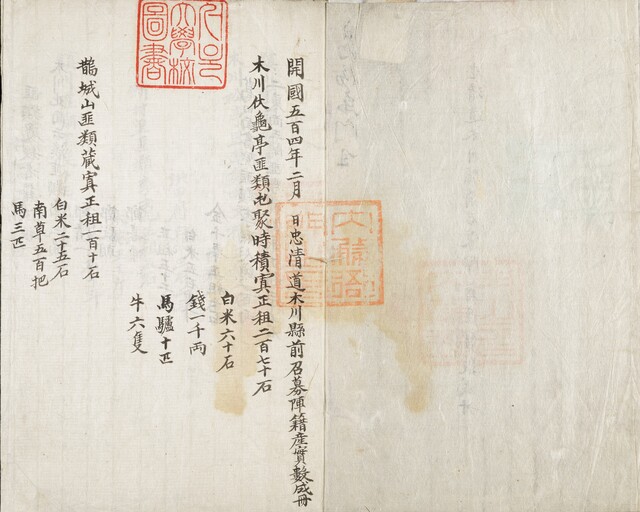 開國五百四年二月 日忠清道木川縣前召募陣籍産實數成冊
木川伏龜亭匪類屯聚時積寘正租二百七十石
白米六十石
錢一千両
馬驢十匹
牛六隻
鵲城山匪類藏寘正租一百十石
白米二十五石
南草五百把
馬三匹